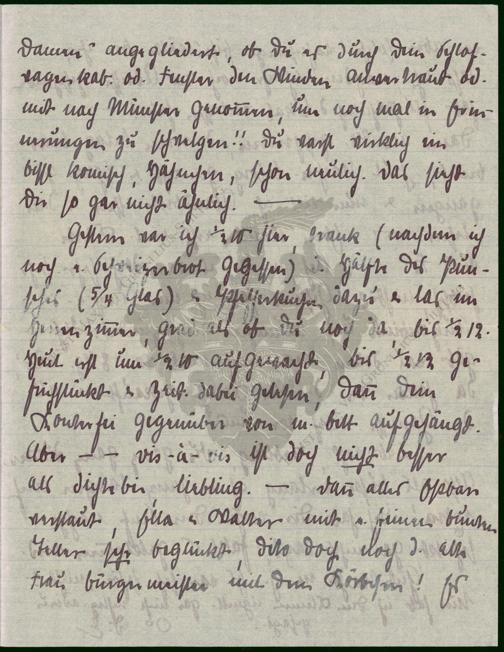 Damen" angegliedert, ob du es durch dein Schlaf-
wagenkab. od. Fenster den Winden anvertraut od.
mit nach Münster genommen, um noch mal in Erin-
nerungen zu schwelgen!! Du warst wirklich ein
bissl komisch, Hähnchen, schon neulich. Das sieht
dir so gar nicht ähnlich. —
Gestern war ich ½ 10 hier, trank (nachdem ich
noch e. Schweizerbrot gegessen) d. Hälfte des Pun-
sches (5/4 Glas) e. Pfefferkuchen dazu & las im
Herrenzimmer, grad als ob du noch da, bis ½ 12.
Heut erst um ½ 10 aufgewacht, bis ½ 12 ge-
frühstückt & Zeit. dabei gelesen, dann dein
Konterfei gegenüber von m. Bett aufgehängt.
Aber – – vis-à-vis ist doch nicht besser
als dichtebei, Liebling. — Dann alles Essbare
verstaut, Ella & Walter mit e. feinen bunten
Teller sehr beglückt, dito doch noch d. alte
Frau Bürgermeister mit dem Körbchen! Es